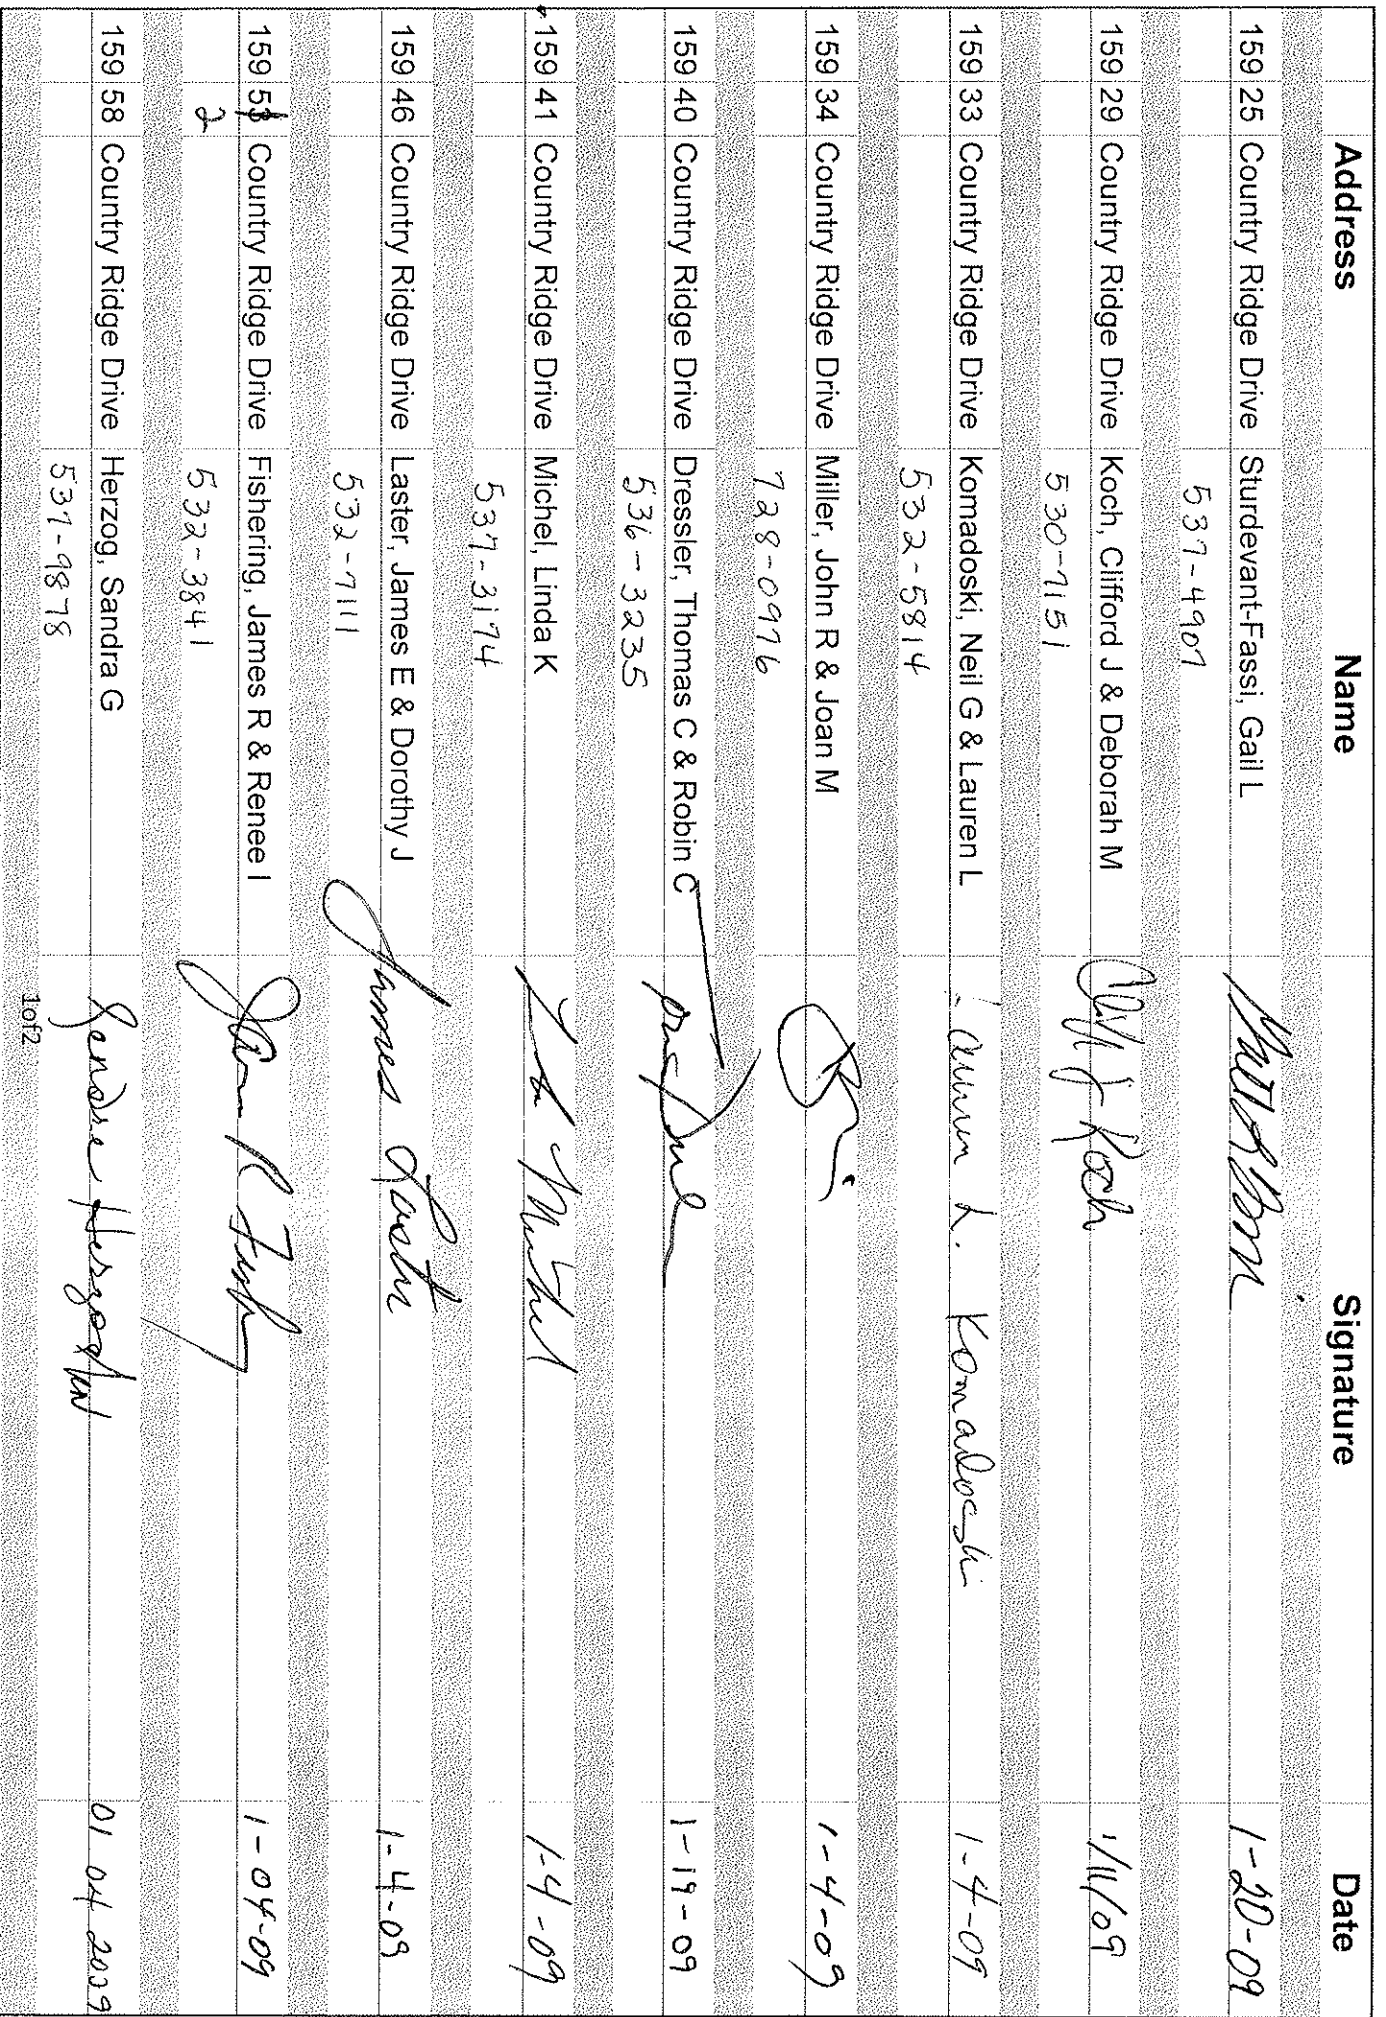 Address Name Signature Date
159 25 Country Ridge Drive Sturdevant-Fassi, Gail L 1-20-09
537-4907
159 29 Country Ridge Drive Koch, Clifford J & Deborah M Cliff J Koch 1/11/09
530-7151
159 33 Country Ridge Drive Komadoski, Neil G & Lauren L Lauren L. Komadoski 1-4-09
532-5814
159 34 Country Ridge Drive Miller, John R & Joan M 1-4-09
728-0976
159 40 Country Ridge Drive Dressler, Thomas C & Robin C 1-19-09
536-3235
159 41 Country Ridge Drive Michel, Linda K Michel 1-4-09
537-3174
159 46 Country Ridge Drive Laster, James E & Dorothy J James Laster 1-4-09
532-7111
159 Country Ridge Drive Fishering, James R & Renee I R 1-04-09
2 532-3841
159 58 Country Ridge Drive Herzog, Sandra G Sandra Herzog 01 04 2009
537-9878
1of2